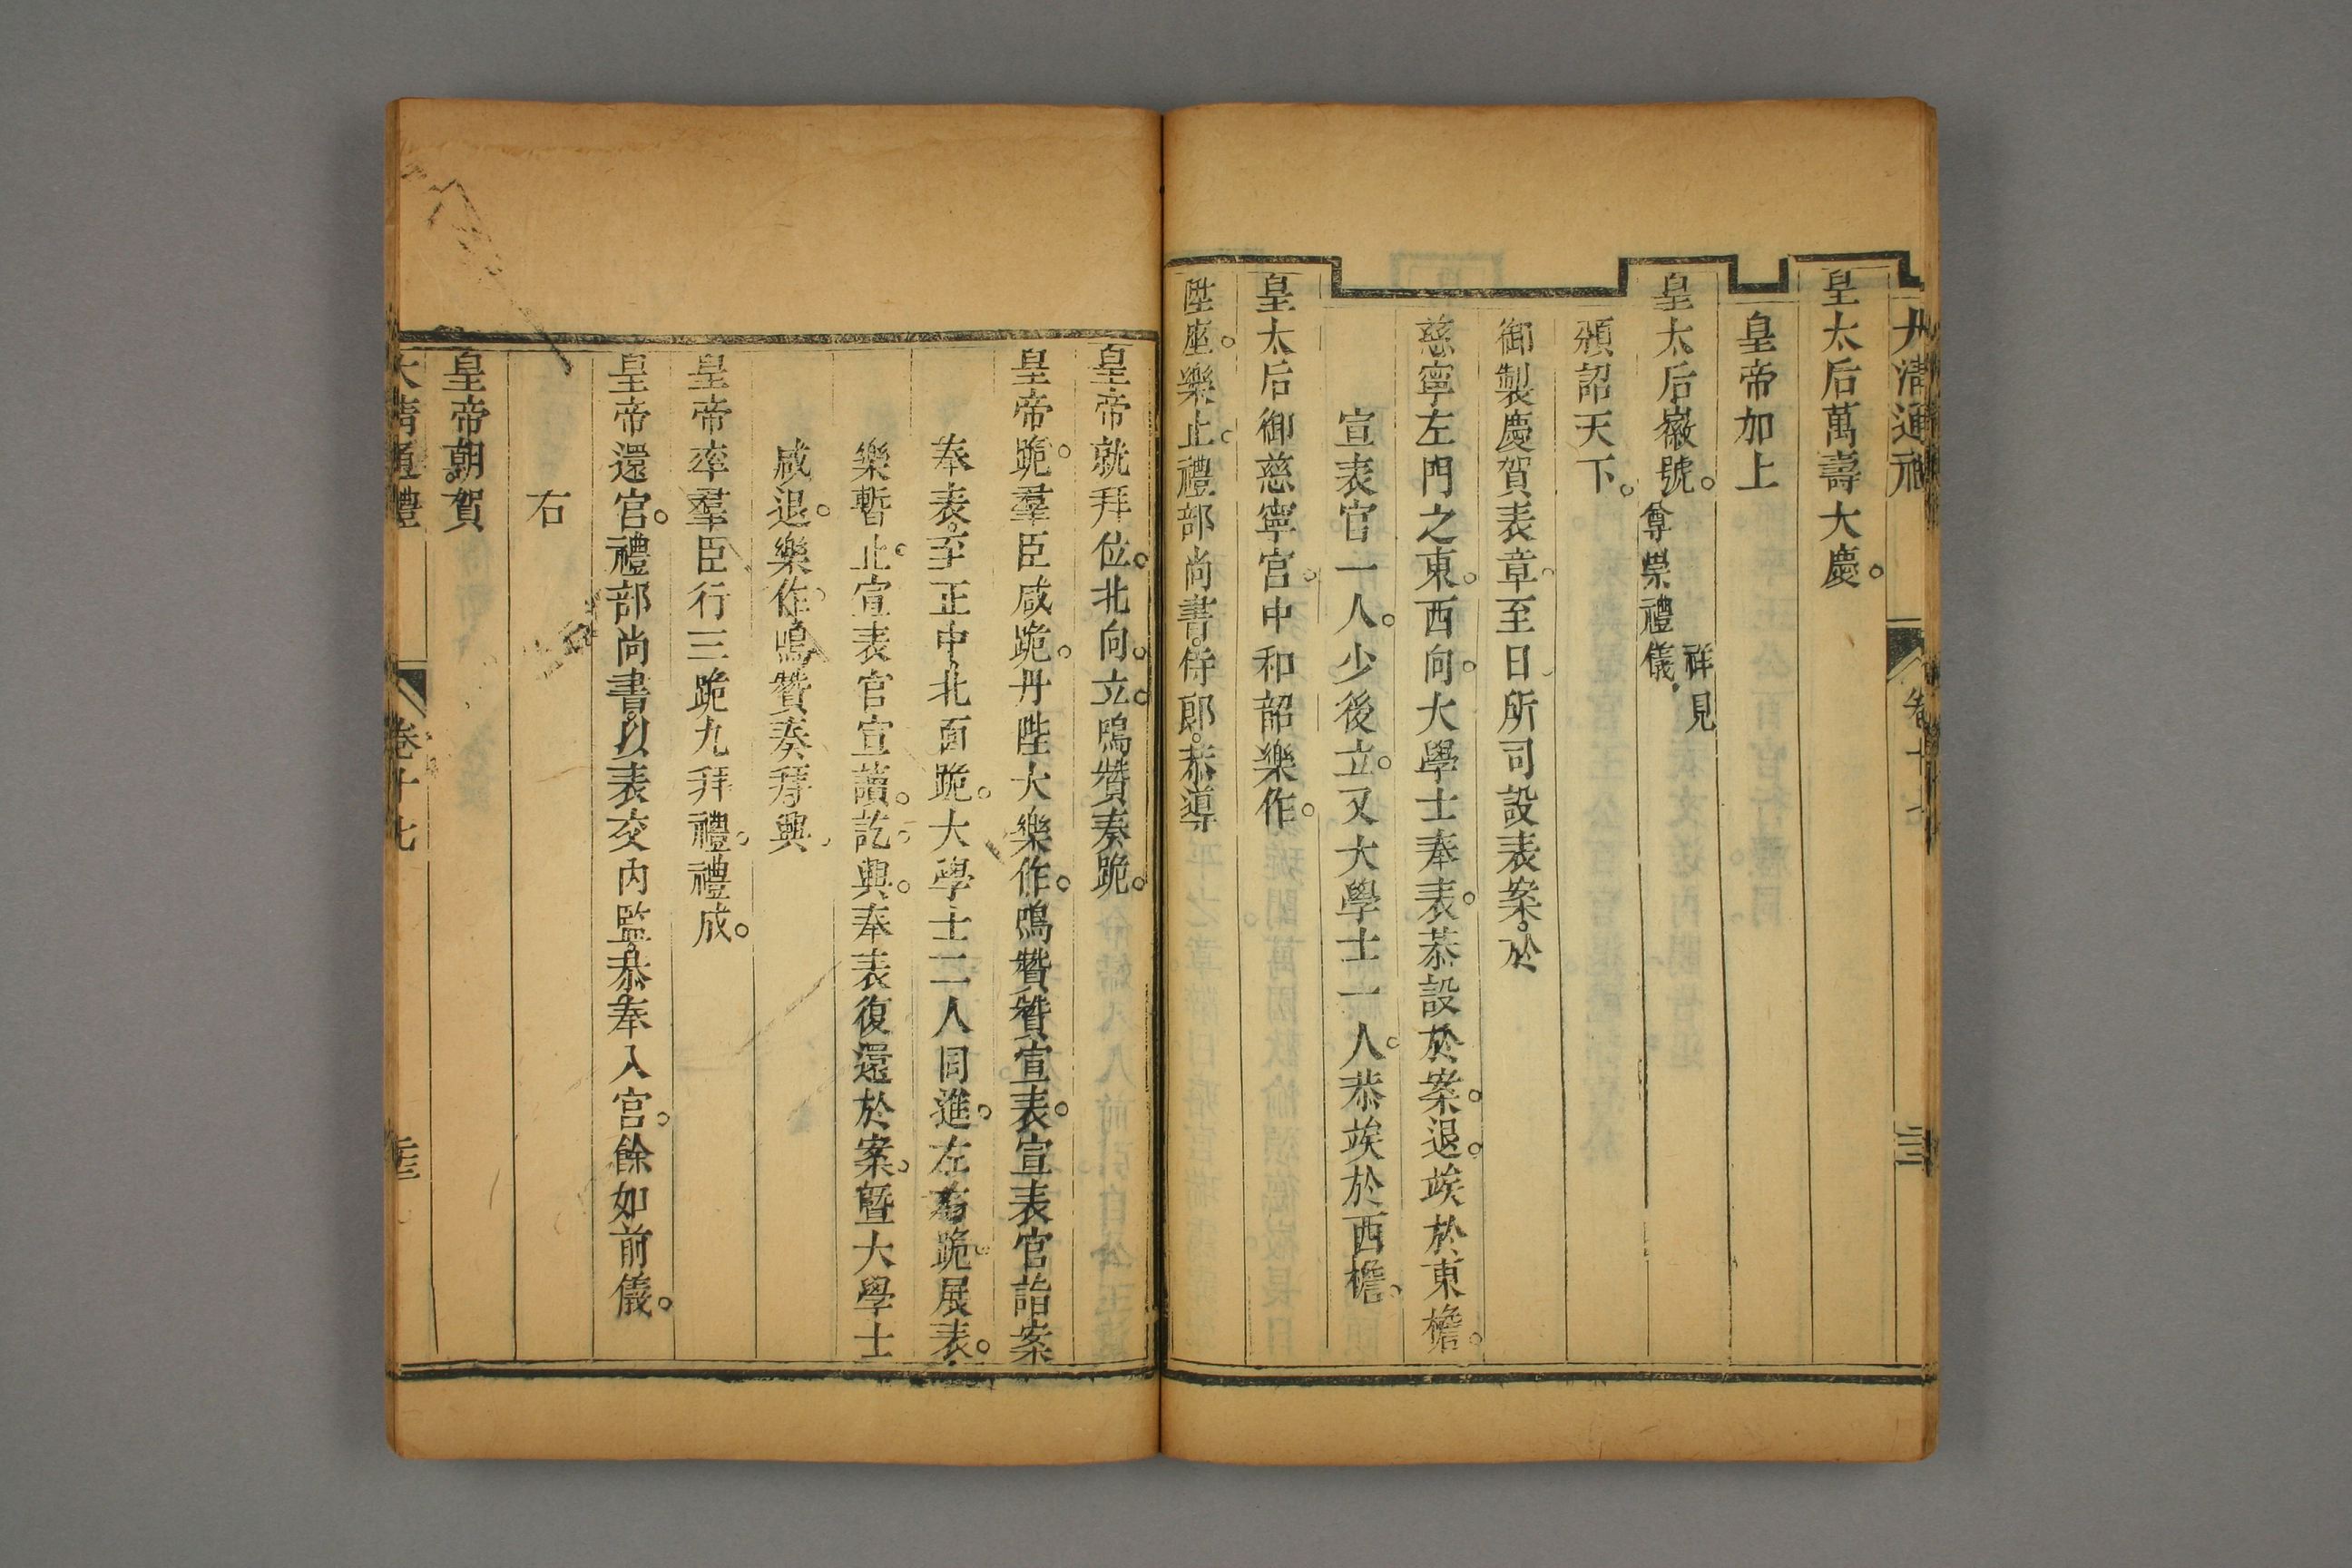 大清通禮 卷十七 三
皇太后萬壽大慶。
皇帝加上
皇太后徽號。詳見尊崇禮儀
頒詔天下。
御製慶賀表章。至日所司設表案。於
慈寧左門之東。西向。大學士奉表。恭設於案。退。竢於東檐。
宣表官一人。少後立。又大學士一人。恭竢於西檐。
皇太后御慈寧宮。中和韶樂作。
陞座。樂止。禮部尚書。侍郞。恭導
皇帝就拜位。北向。立。鳴贊奏跪。
皇帝跪。羣臣咸跪。丹陛大樂作。鳴贊贊宣表。宣表官詣案
奉表。至正中北面跪。大學士二人同進。左右跪。展表。
樂暫止。宣表官宣讀。訖。興。奉表復還於案。曁大學士
咸退。樂作。鳴贊奏拜。興。
皇帝率羣臣行三跪九拜禮。禮成。
皇帝還宮。禮部尚書。以表交內監。恭奉入宮。餘如前儀。
右
皇帝朝賀
大清通禮 卷十七